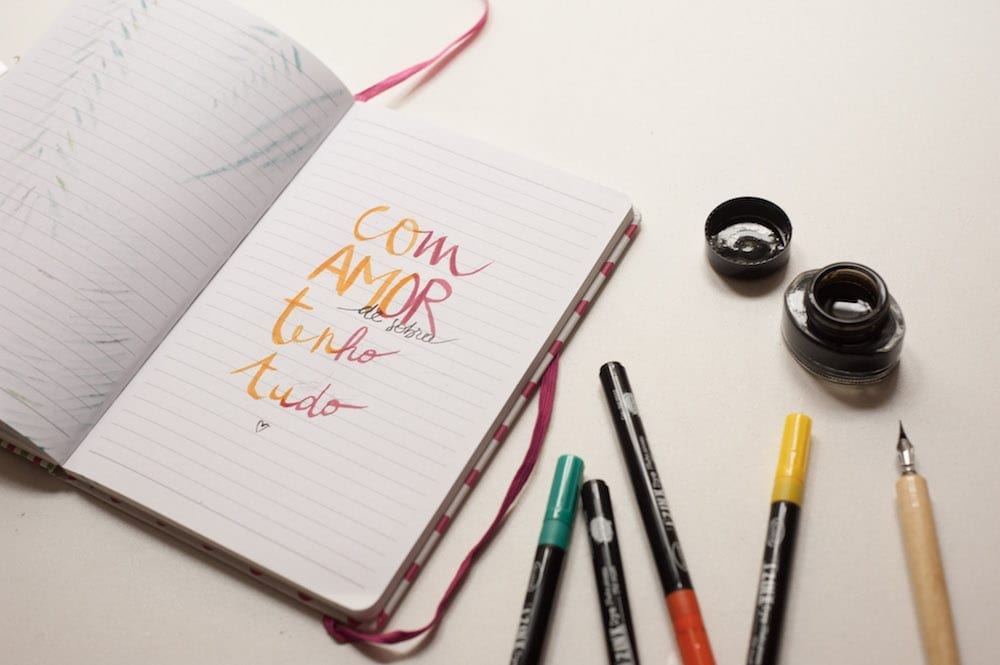 com
AMOR
de sobra
tenho
tudo